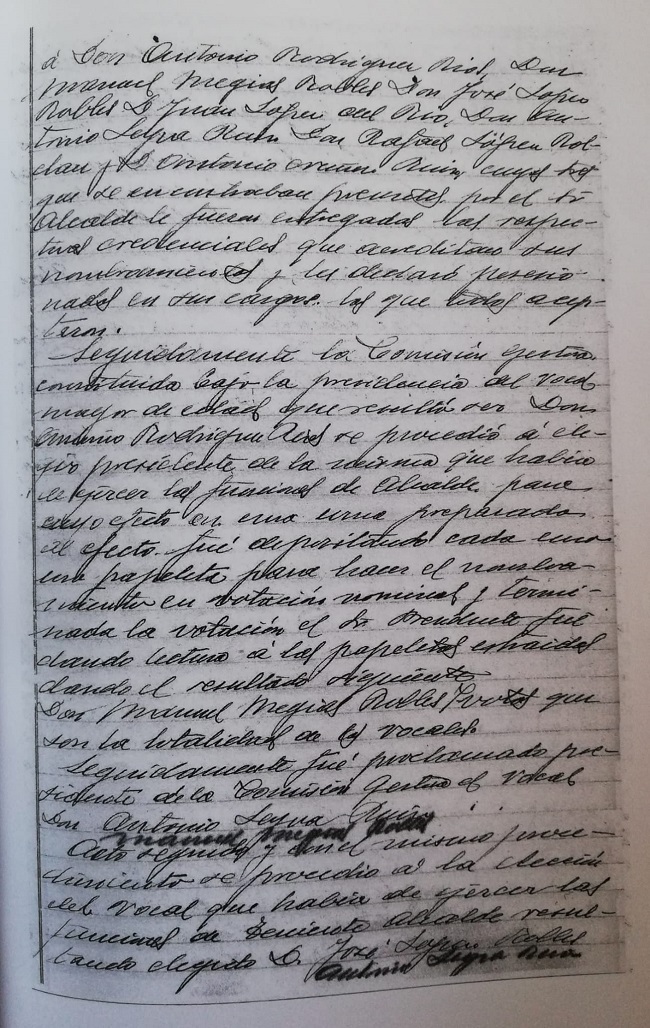 á Don Antonio Rodriguez Rios, Don
Manuel Megias Robles Don José Lopez
Robles D. Juan Lopez del Rio, Don An-
tonio Leyva Ruiz Don Rafael López Rol-
dan y D Antonio Ruiz, cuyos
que se encontraban presentes, por el Sr
Alcalde le fueron entregadas las respec-
tivas credenciales que acreditan sus
nombramientos y les declaró posesio-
nados en sus cargos. los que todos acep-
taron.
Seguidamente la Comisión gestora
constituida bajo la presidencia del vocal
mayor de edad que resultó ser Don
Antonio Rodriguez Rios se procedió á ele-
gir presidente de la misma que habia
de ejercer las funciones de Alcalde para
cuyo efecto en una urna preparada
al efecto fué depositando cada uno
una papeleta para hacer el nombra-
miento en votación nominal y termi-
nada la votación el Sr Presidente fué
dando lectura á las papeletas extraidas
dando el resultado siguiente
Don Manuel Megias Robles 7 votos que
son la totalidad de los vocales.
Seguidamente fué proclamado pre-
sidente de la Comisión Gestora el vocal
Don Antonio Leyva Ruiz
Manuel Megias Robles
Acto seguido y con el mismo proce-
dimiento se procedio á la elección
del vocal que habia de ejercer las
funciones de Teniente Alcalde resul-
tando elegido D. José Lopez Robles
Antonio Leyva Ruiz